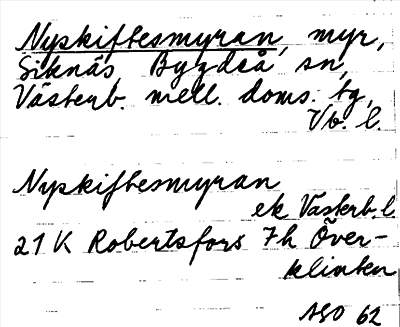 Nyskiftesmyran, myr,
Siknäs, Bygdeå sn,
Västerb. mell. doms. tg,
Vb. l.
Nyskiftesmyran
ek Västerb. l
21 K Robertsfors 7h Över-
klinten
ASO 62